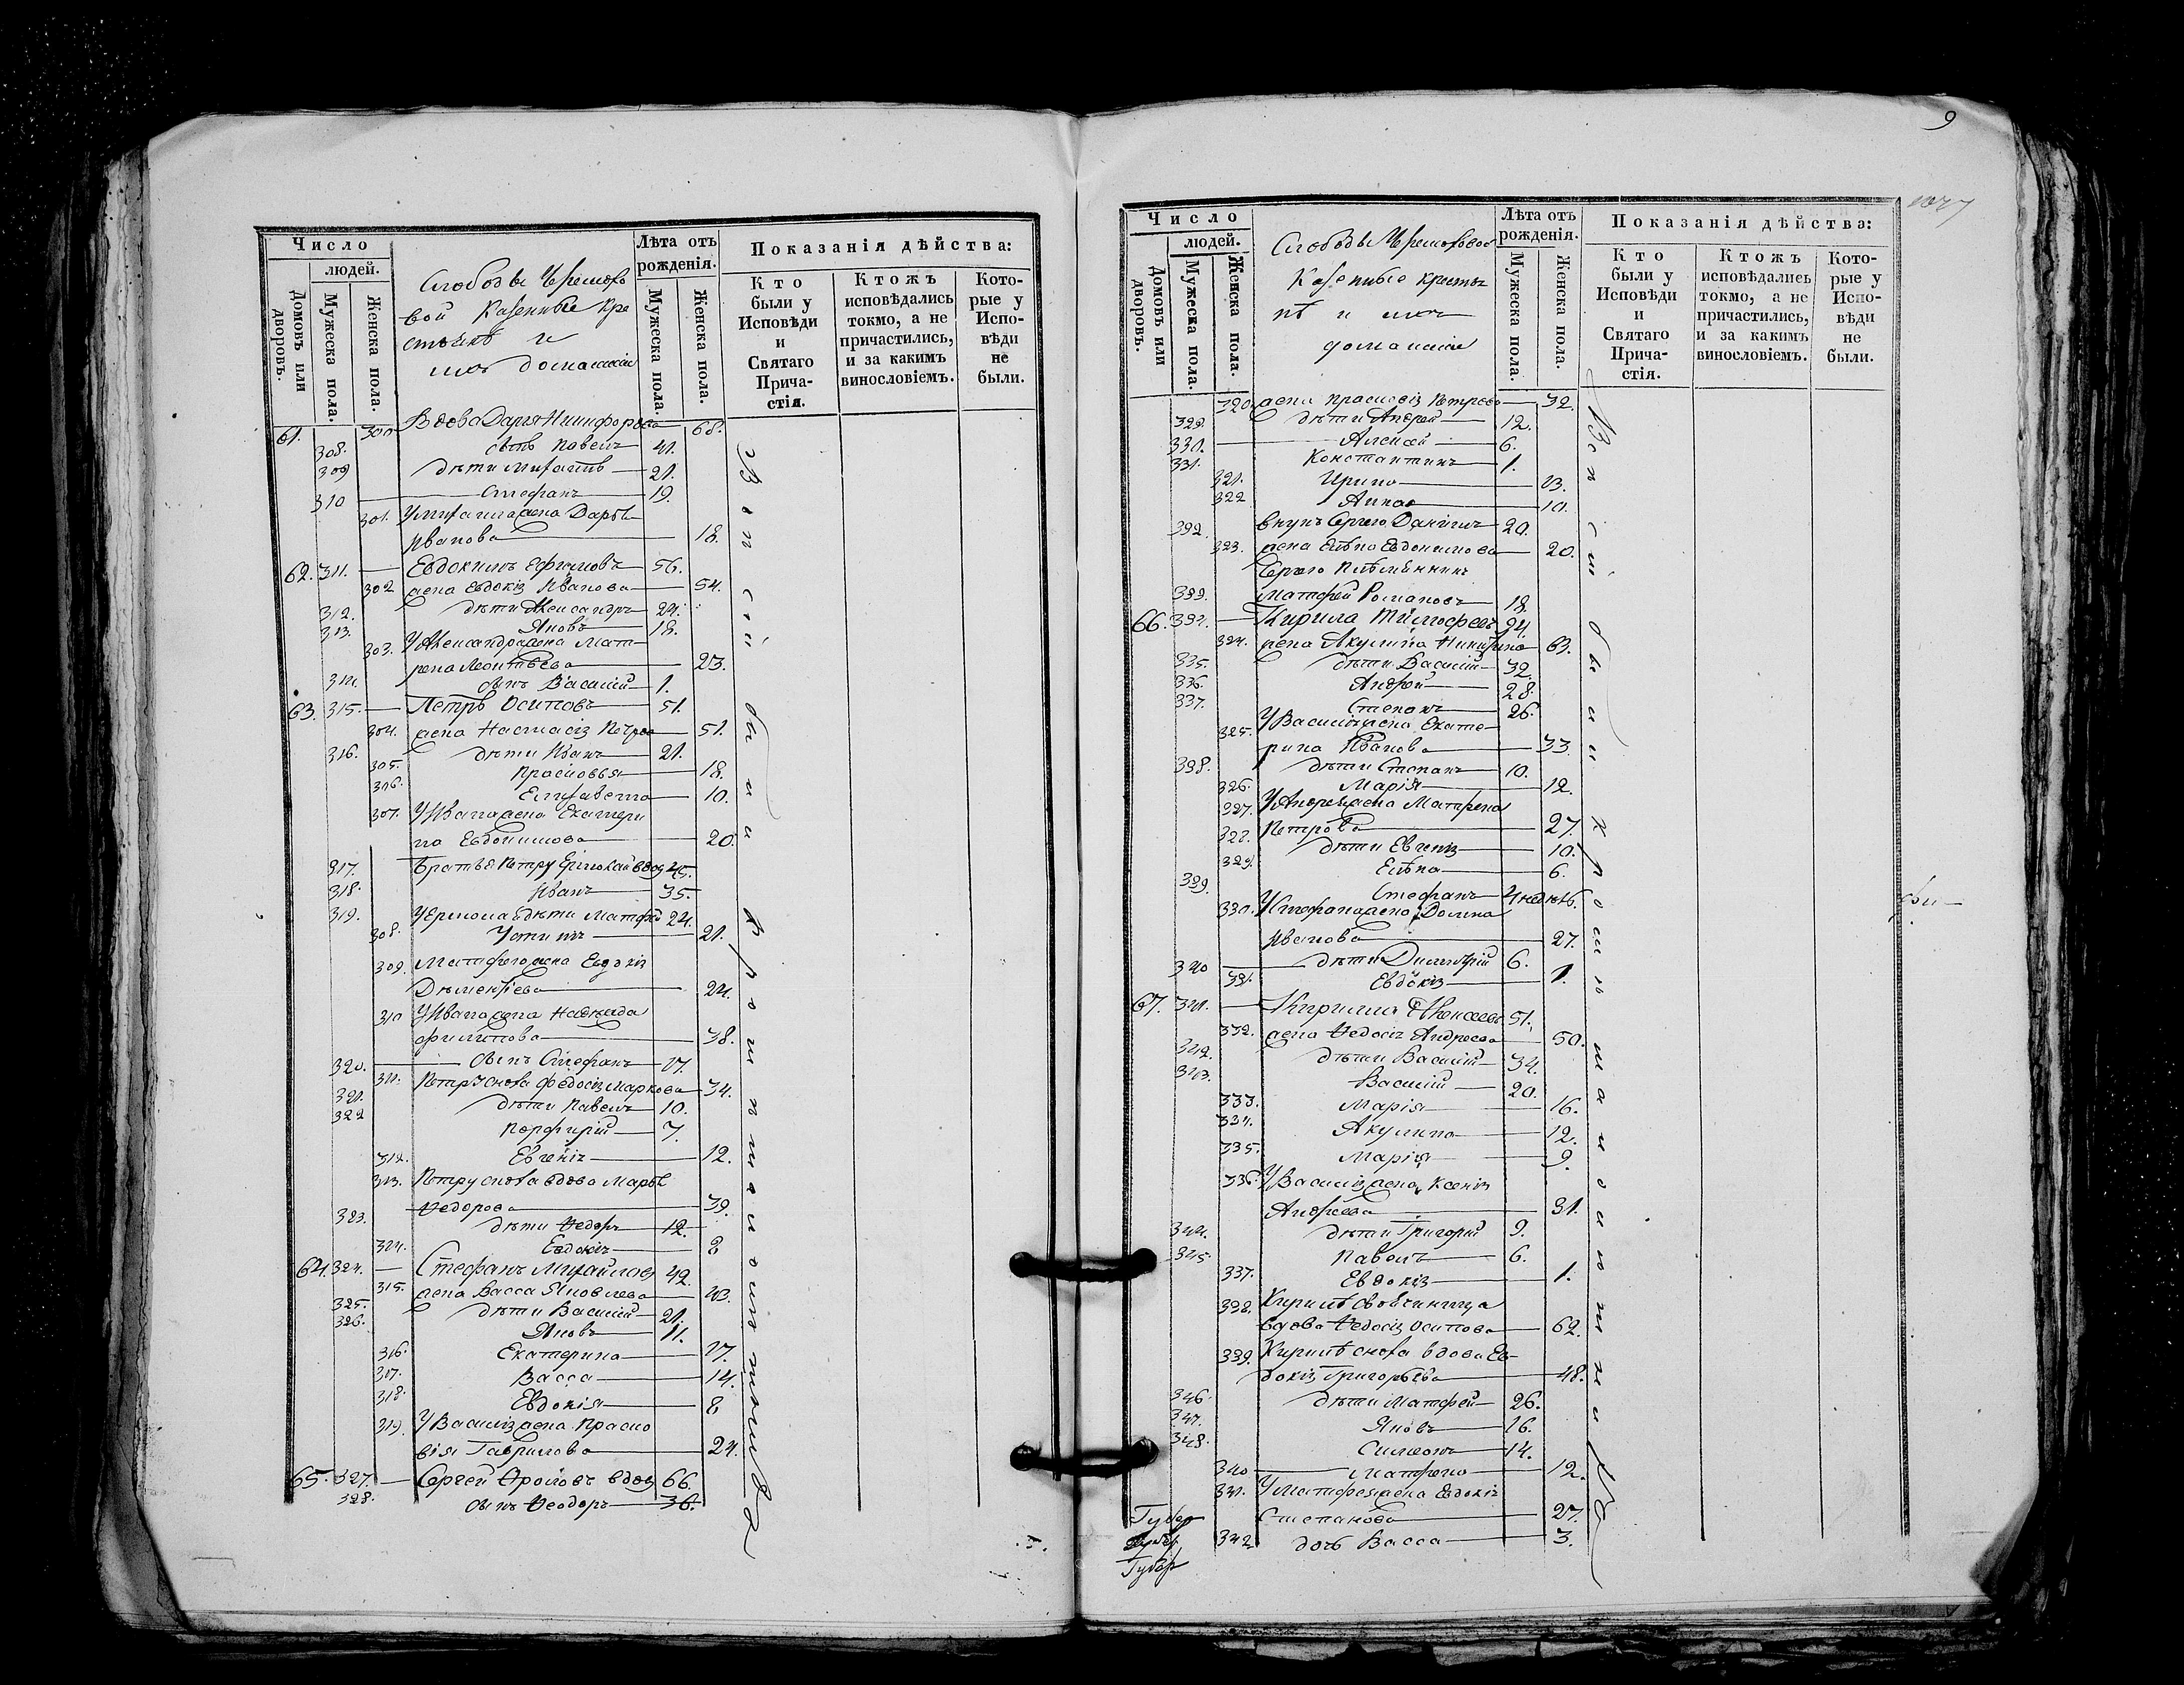 Число
людей.
Домовъ или дворовъ.
Мужеска пола.
Женска пола.
Слободы Черемхо
вой Казенные Кре
стьянѣ и
ихъ домашніе
Лѣта отъ рожденія.
Мужеска пола.
Женска пола.
Показанія дѣйства:
Кто были у Исповѣди и Святаго Причастія.
Ктожъ исповѣдались токмо, а не причастились, и за какимъ винословіемъ.
Которые у Исповѣди не были.
61. 300 Вдова Дарья Никифорова 68.
308. сынъ Павелъ 41.
309 дѣти Михаилъ 21.
310 Стефанъ 19.
301. У Михаила жена Дарья
Иванова 18.
62. 311. Евдокимъ Ефимовъ 56.
302 жена Евдокія Иванова 54.
312. дѣти Александръ 24.
313. Яковъ 18.
303. У Александра жена Мат
рена Леонтьева 23.
314. сынъ Василій 1.
63. 315. Петръ Осиповъ 51.
304. жена Настасія Петрова 51.
316. дѣти Иванъ 21.
305. Прасковья 18.
306. Елизавета 10.
307. У Ивана жена Екатери
на Евдокимова 20.
317. Братья Петру Ермолай вдов 45.
318. Иванъ 35.
319. У Ермолая дѣти Матфей 24.
308. Устинья 21.
309. Матфея жена Евдокія
Дементіева 24.
310 У Ивана жена Надежда
Филипова 38.
320. сынъ Стефанъ 17.
311. Петру сноха Федосія Маркова 34.
321. дѣти Павелъ 10.
322 Порфирій 7.
312. Евгенія 12.
313. Петру сноха вдова Марья
Ѳедорова 39.
323. дѣти Ѳедоръ 12.
314. Евдокія 8
64. 324. Стефанъ Михайловъ 42.
315. жена Васса Яковлева 43.
325. дѣти Василій 21.
326. Яковъ 11.
316. Екатерина 17.
317. Васса 14.
318. Евдокія 8
319. У Василія жена Праско
вія Гаврилова 24.
65. 327. Сергей Фроловъ вдов 66.
328. сынъ Ѳеодоръ 36.
Вси сіи были при Святаго
9
1027
Число
людей.
Домовъ или дворовъ.
Мужеска пола.
Женска пола.
Слободы Черемховой
Казенные крестья
нѣ и ихъ
домашніе
Лѣта отъ рожденія.
Мужеска пола.
Женска пола.
Показанія дѣйства:
Кто были у Исповѣди и Святаго Причастія.
Ктожъ исповѣдались токмо, а не причастились, и за какимъ винословіемъ.
Которые у Исповѣди не были.
320. жена Прасковія Петрова 32.
329. дѣти Андрей 12.
330. Алексей 6.
331. Константинъ 1.
321. Ирина 13.
322 Анна 10.
332. внукъ Сергею Данилъ 20.
323. жена Елѣна Евдокимова 20.
Сергею племянникъ
333. Матфей Романовъ 18.
66. 334. Кирила Тимофеевъ 94.
324. жена Акулина Никитина 63.
335. дѣти Василій 32.
336. Андрей 28.
337. Степанъ 26.
325. У Василія жена Екате
рина Иванова 33.
338. дѣти Степанъ 10.
326. Марія 12.
327. У Андрея жена Матрена
Петрова 27.
328. дѣти Евгенія 10.
329. Елѣна 6.
339. Стефанъ 4 недѣль.
330. У Стефана жена Домна
Иванова 27.
340 дѣти Димитрій 6.
331. Евдокія 1.
67. 341. Кирилъ Алексеевъ 51.
332. жена Ѳедосія Андреева 50.
342. дѣти Василій 34.
343. Василій 20.
333. Марія 16.
334. Акулина 12.
335. Марія 9.
336. У Василія жена Ксенія
Андреева 31.
344. дѣти Григорій 9.
345. Павелъ 6.
337. Евдокія 1.
338.
вдова Ѳедосія Осипова 62.
339. Кирилѣ сноха вдова Ев
докія Григорьева 48.
346. дѣти Матфей 26.
347. Яковъ 16.
348. Симеонъ 14.
340 Матрена 12.
341. У Матфея жена Евдокія
Степанова 27.
342. дочь Васса 3.
Вси сіи были
Губер
Губер
Губер